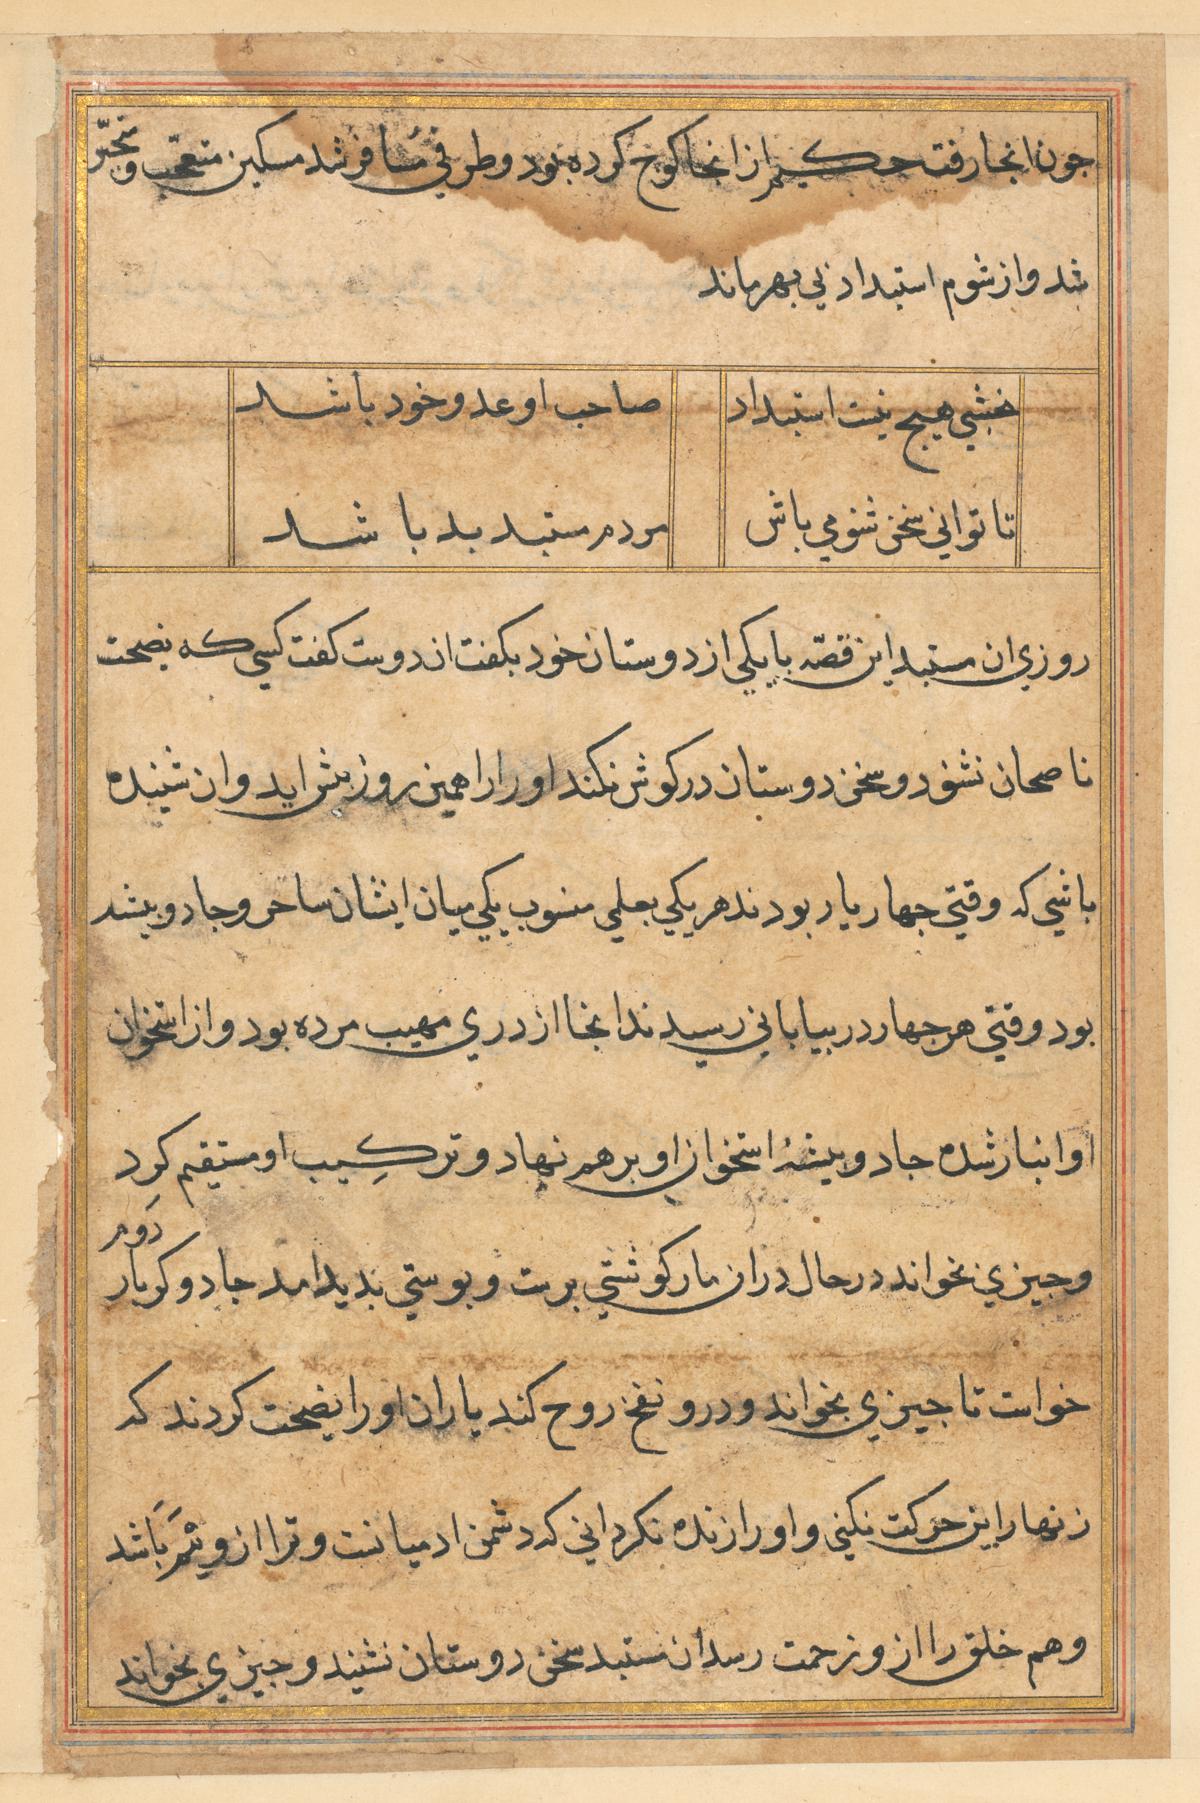 جون انجا رفت حکیم از انجا کوج کرده بود و طرفی مسافر شد مسکین متعجب و متحیّر
شد و از شوم استبداد بی بهر ماند
نخشبی هیچ نیست استبداد صاحب او عدو خود باشد
تا توانی سخن شنو می باش مردم مستبد بد باشد
روزی ان مستبد این قصّه با یکی از دوستان خود بکفت ان دوست کفت کسی که نصیحت
ناصحان نشنود و سخن دوستان در کوش نکند او را را همین روز بیش اید و ان شنیده
باشی که وقتی جهار یار بودند هر یکی بعلمی منسوب یکی میان ایشان ساحر و جادو بیشه
بود وقتی هر جهار در بیابانی رسیدند انجا اژدری مهیب مرده بود و از استخوان
او انبار شده جادو بیشهٔ استخوان او بر هم نهاد و ترکیب او مستقیم کرد
و جیزی بخواند در حال در ان مار کوشتی برست و بوستی بدید امد جادوکر بار دوم
خواست تا جیزی بخواند و درو نفخ روح کند یاران او را نصیحت کردند که
زنهار این حرکت نکنی و او را زنده نکردانی که دشمن ادمیانست و ترا از و ثمر باشد
و هم خلق را از و زحمت رسد ان مستبد سخن دوستان نشنید و جیزی بخواند